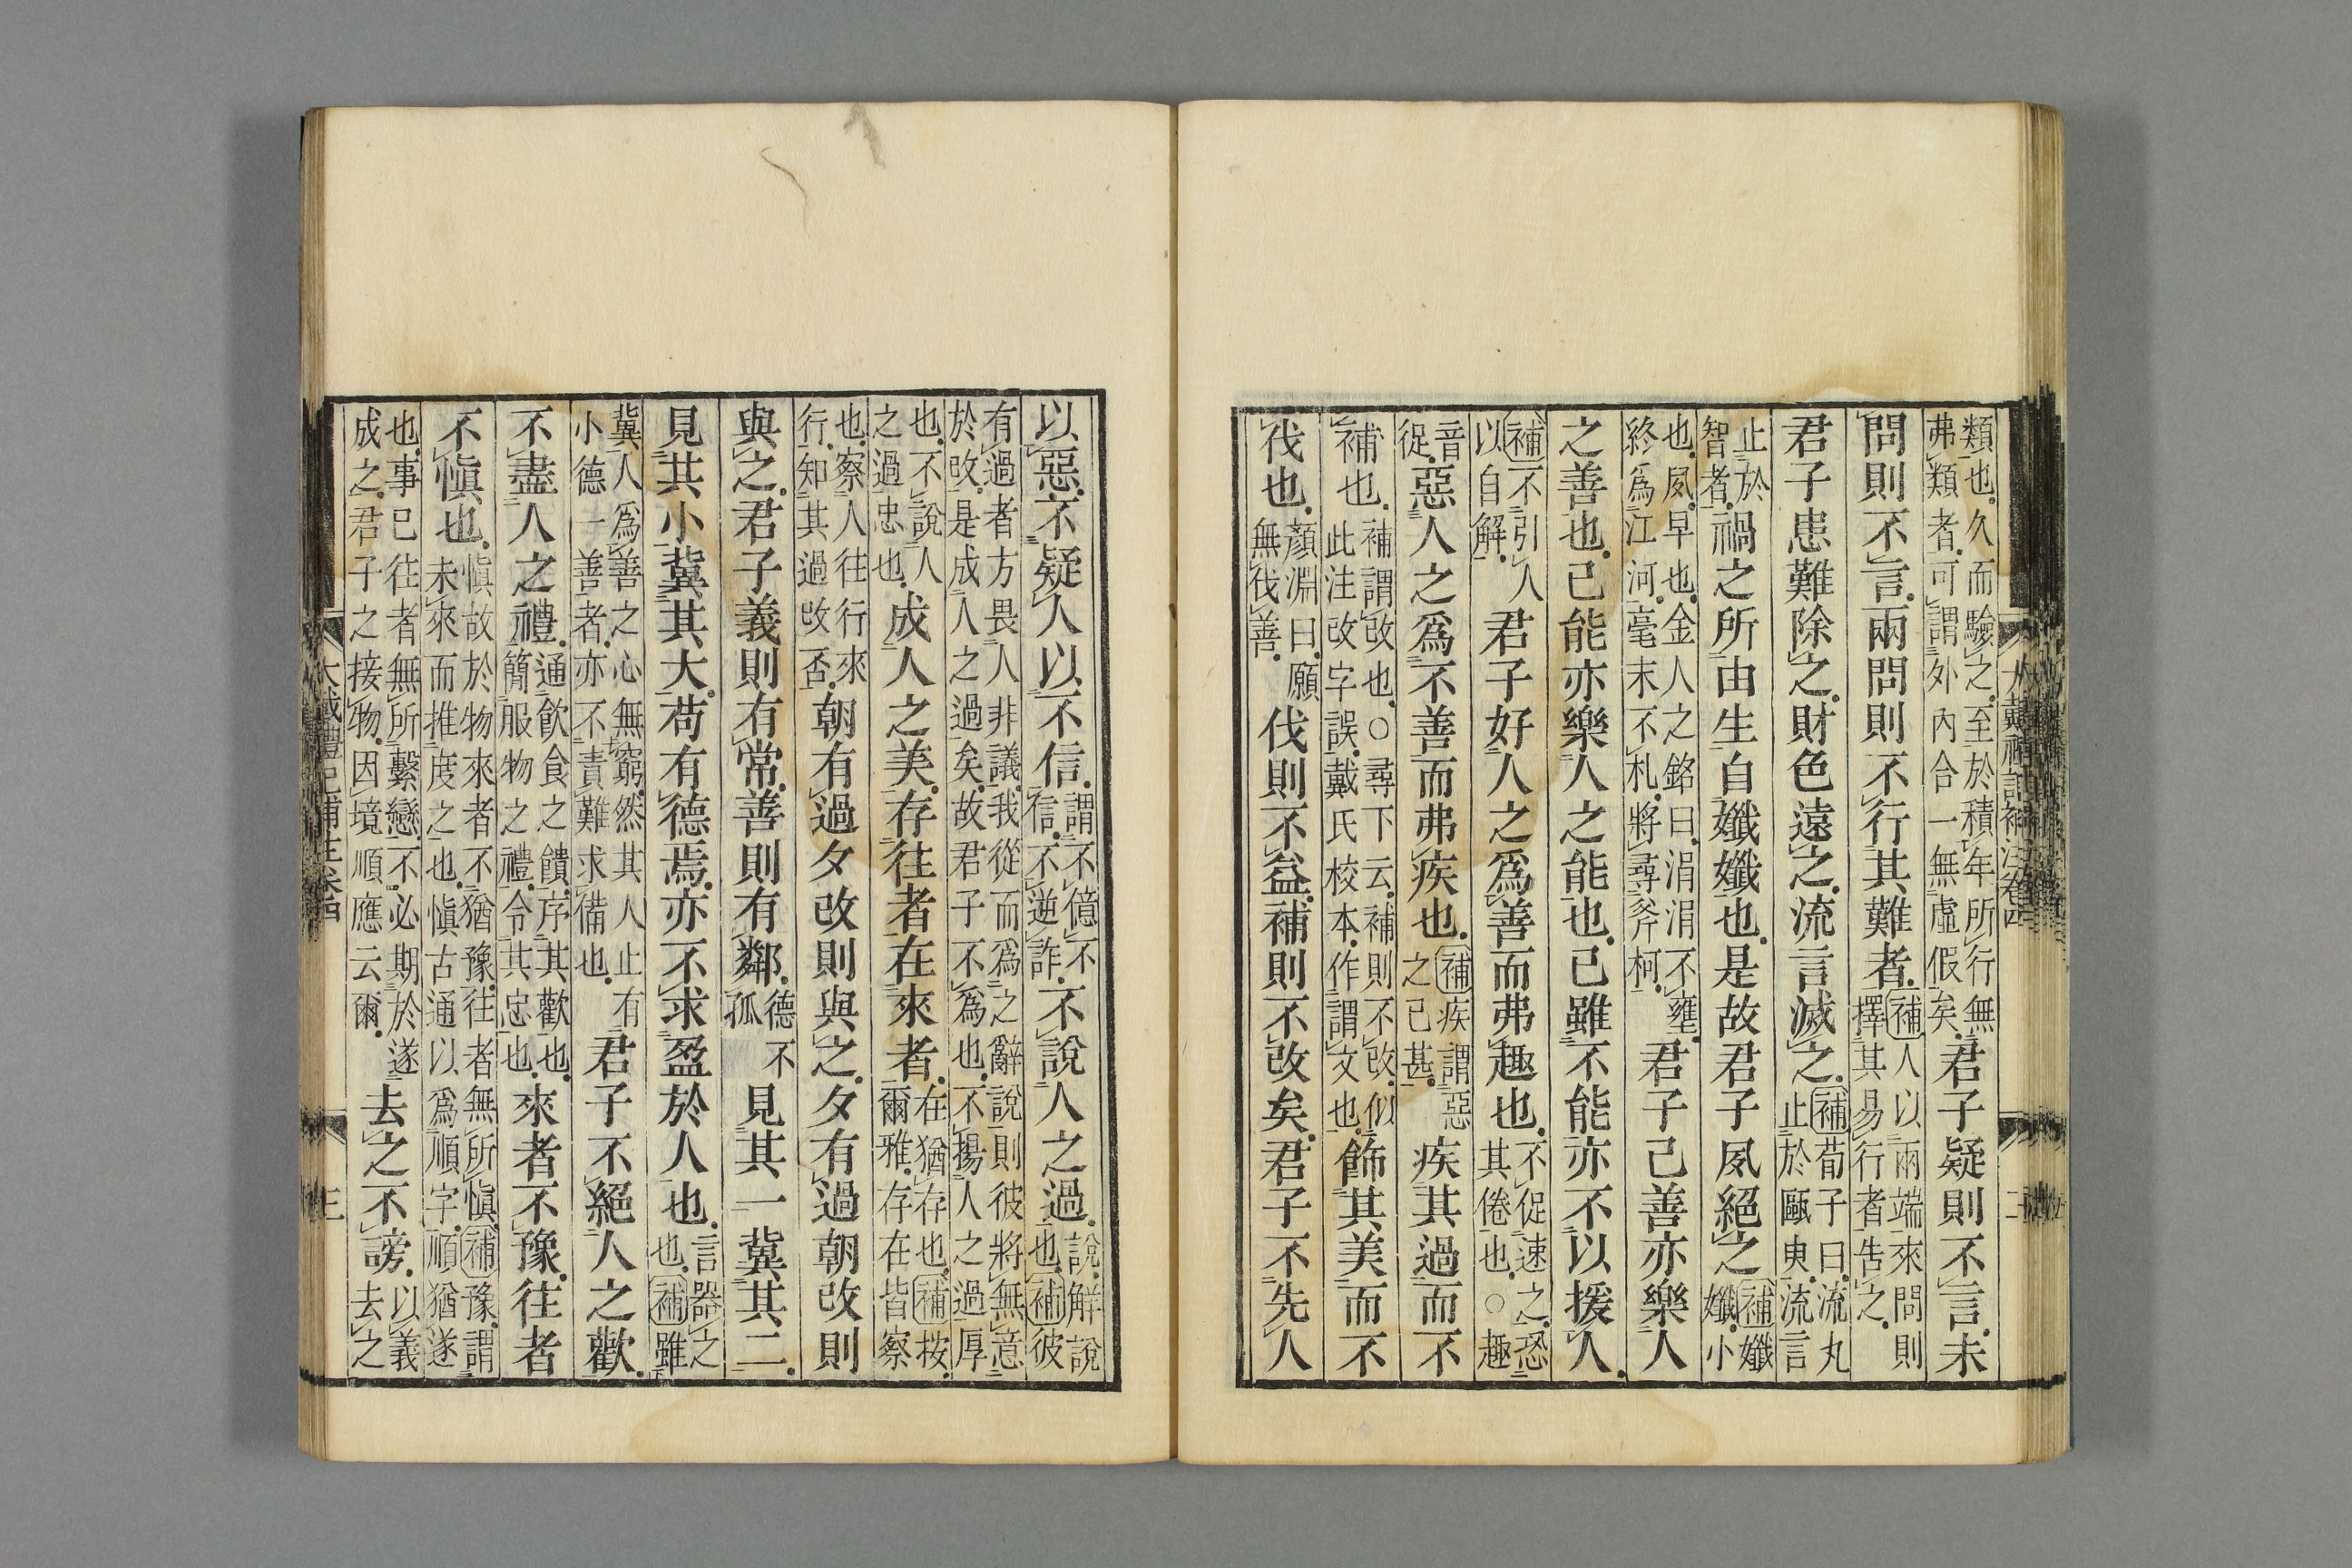 類也久而驗之至於積年所行無
弗類者可謂外內合一無虛假矣君子疑則不言未
問則不言兩問則不行其難者補人以兩端來問則
擇其易行者告之
君子患難除之財色遠之流言滅之補荀子曰流丸
止於甌臾流言
止於
智者禍之所由生自孅孅也是故君子夙絕之補孅
孅小
也夙早也金人之銘曰涓涓不壅
終爲江河毫末不札將尋斧柯君子己善亦樂人
之善也己能亦樂人之能也己雖不能亦不以援人
補不引人
以自解君子好人之爲善而弗趣也不促速之恐
其倦也○趣
音
促惡人之爲不善而弗疾也補疾謂惡
之已甚疾其過而不
補也補謂改也○尋下云補則不改似
此注改字誤戴氏校本作謂文也飾其美而不
伐也顏淵曰願
無伐善伐則不益補則不改矣君子不先人
大戴禮記補注卷四
二
以惡不疑人以不信謂不億不
信不逆詐不說人之過說解說
也補彼
有過者方畏人非議我從而爲之辭說則彼將無意
於改是成人之過矣故君子不爲也不揚人之過厚
也不說人
之過忠也成人之美存往者在來者在猶存也補按
爾雅存在皆察
也察人往行來
行知其過改否朝有過夕改則與之夕有過朝改則
與之君子義則有常善則有鄰德不
孤見其一冀其二
見其小冀其大苟有德焉亦不求盈於人也言器之
也補雖
冀人爲善之心無窮然其人止有
小德一善者亦不責難求備也君子不絕人之歡
不盡人之禮通飲食之饋序其歡也
簡服物之禮令其忠也來者不豫往者
不愼也愼故於物來者不猶豫往者無所愼補豫謂
未來而推度之也愼古通以爲順字順猶遂
也事已往者無所繫戀不必期於遂
成之君子之接物因境順應云爾去之不謗以義
去之
大戴禮記補注卷四
三